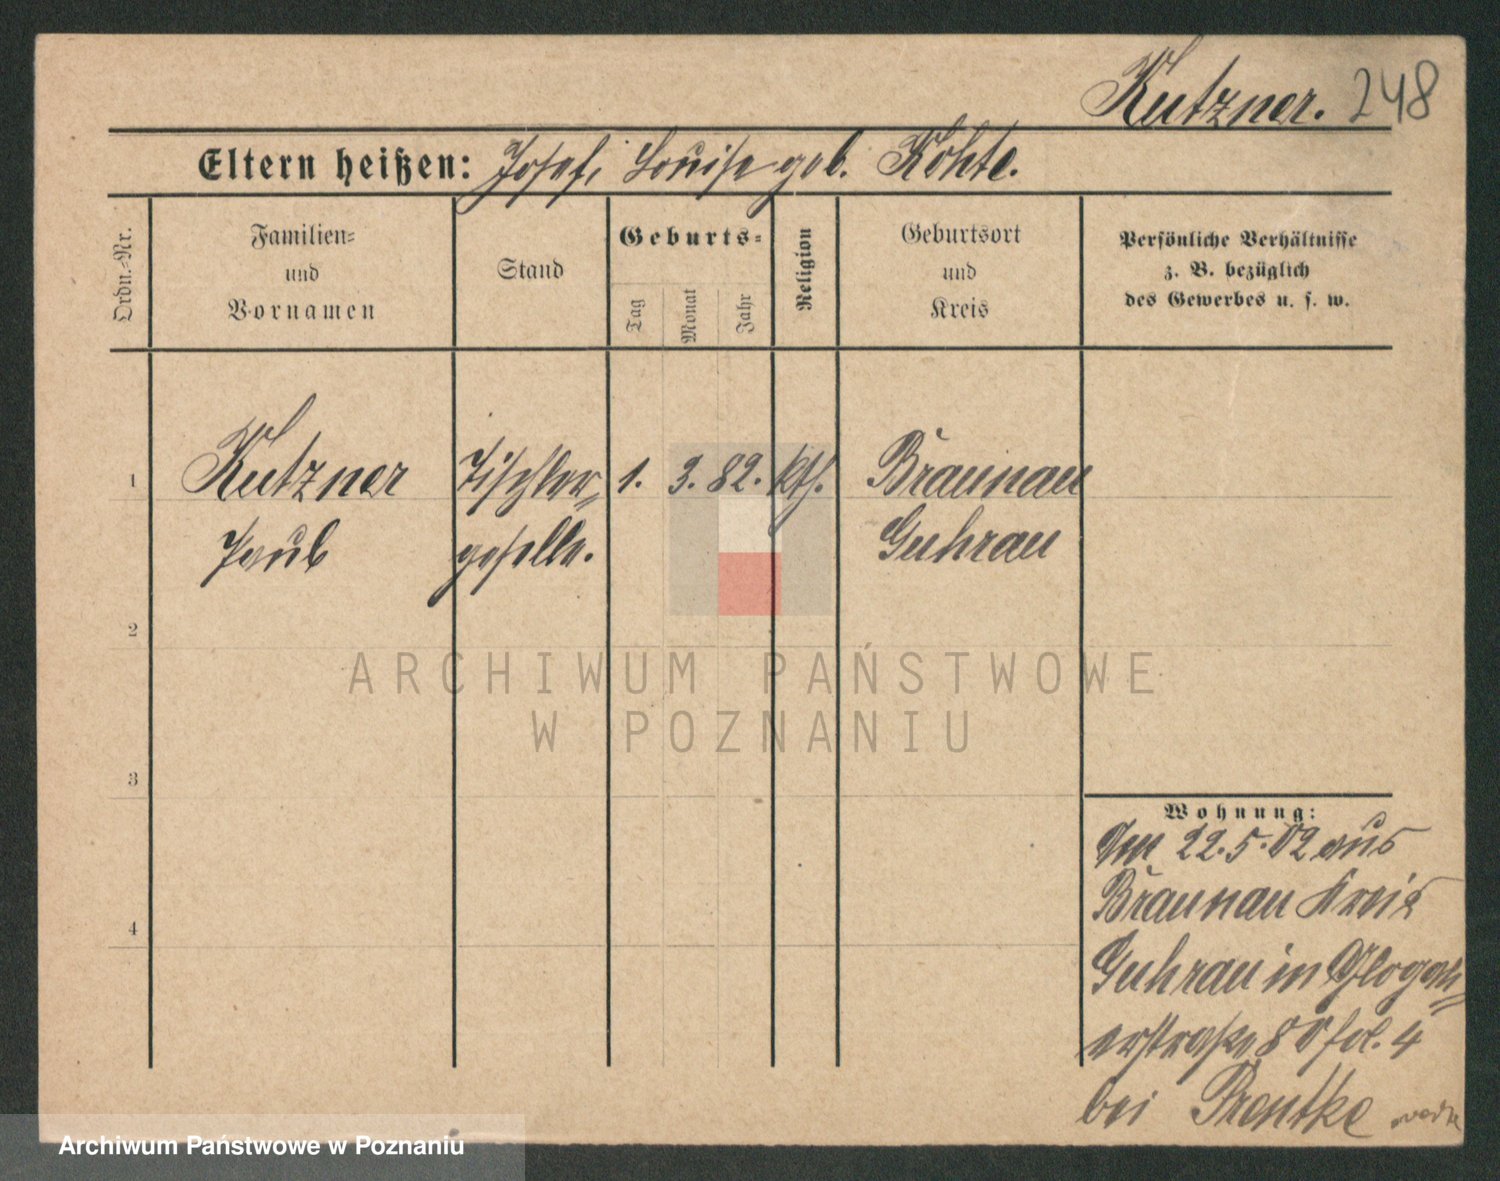 Kutzner. 248
Eltern heißen: Josef, Louise geb. Kohte.
Ordn.-Nr.
Familien-
und
Vornamen
Stand
Geburts-
Tag
Monat
Jahr
Religion
Geburtsort
und
Kreis
Persönliche Verhältnisse
z. B. bezüglich
des Gewerbes u. s. w.
1 Kutzner Tischler- 1. 3. 82. kth. Braunau
Paul geselle. Guhrau
2
3
4
ARCHIWUM PAŃSTWOWE
W POZNANIU
Wohnung:
Am 22.5.02 aus
Braunau Kreis
Guhrau in Glogau-
erstraße 8 fol. 4
bei
Archiwum Państwowe w Poznaniu